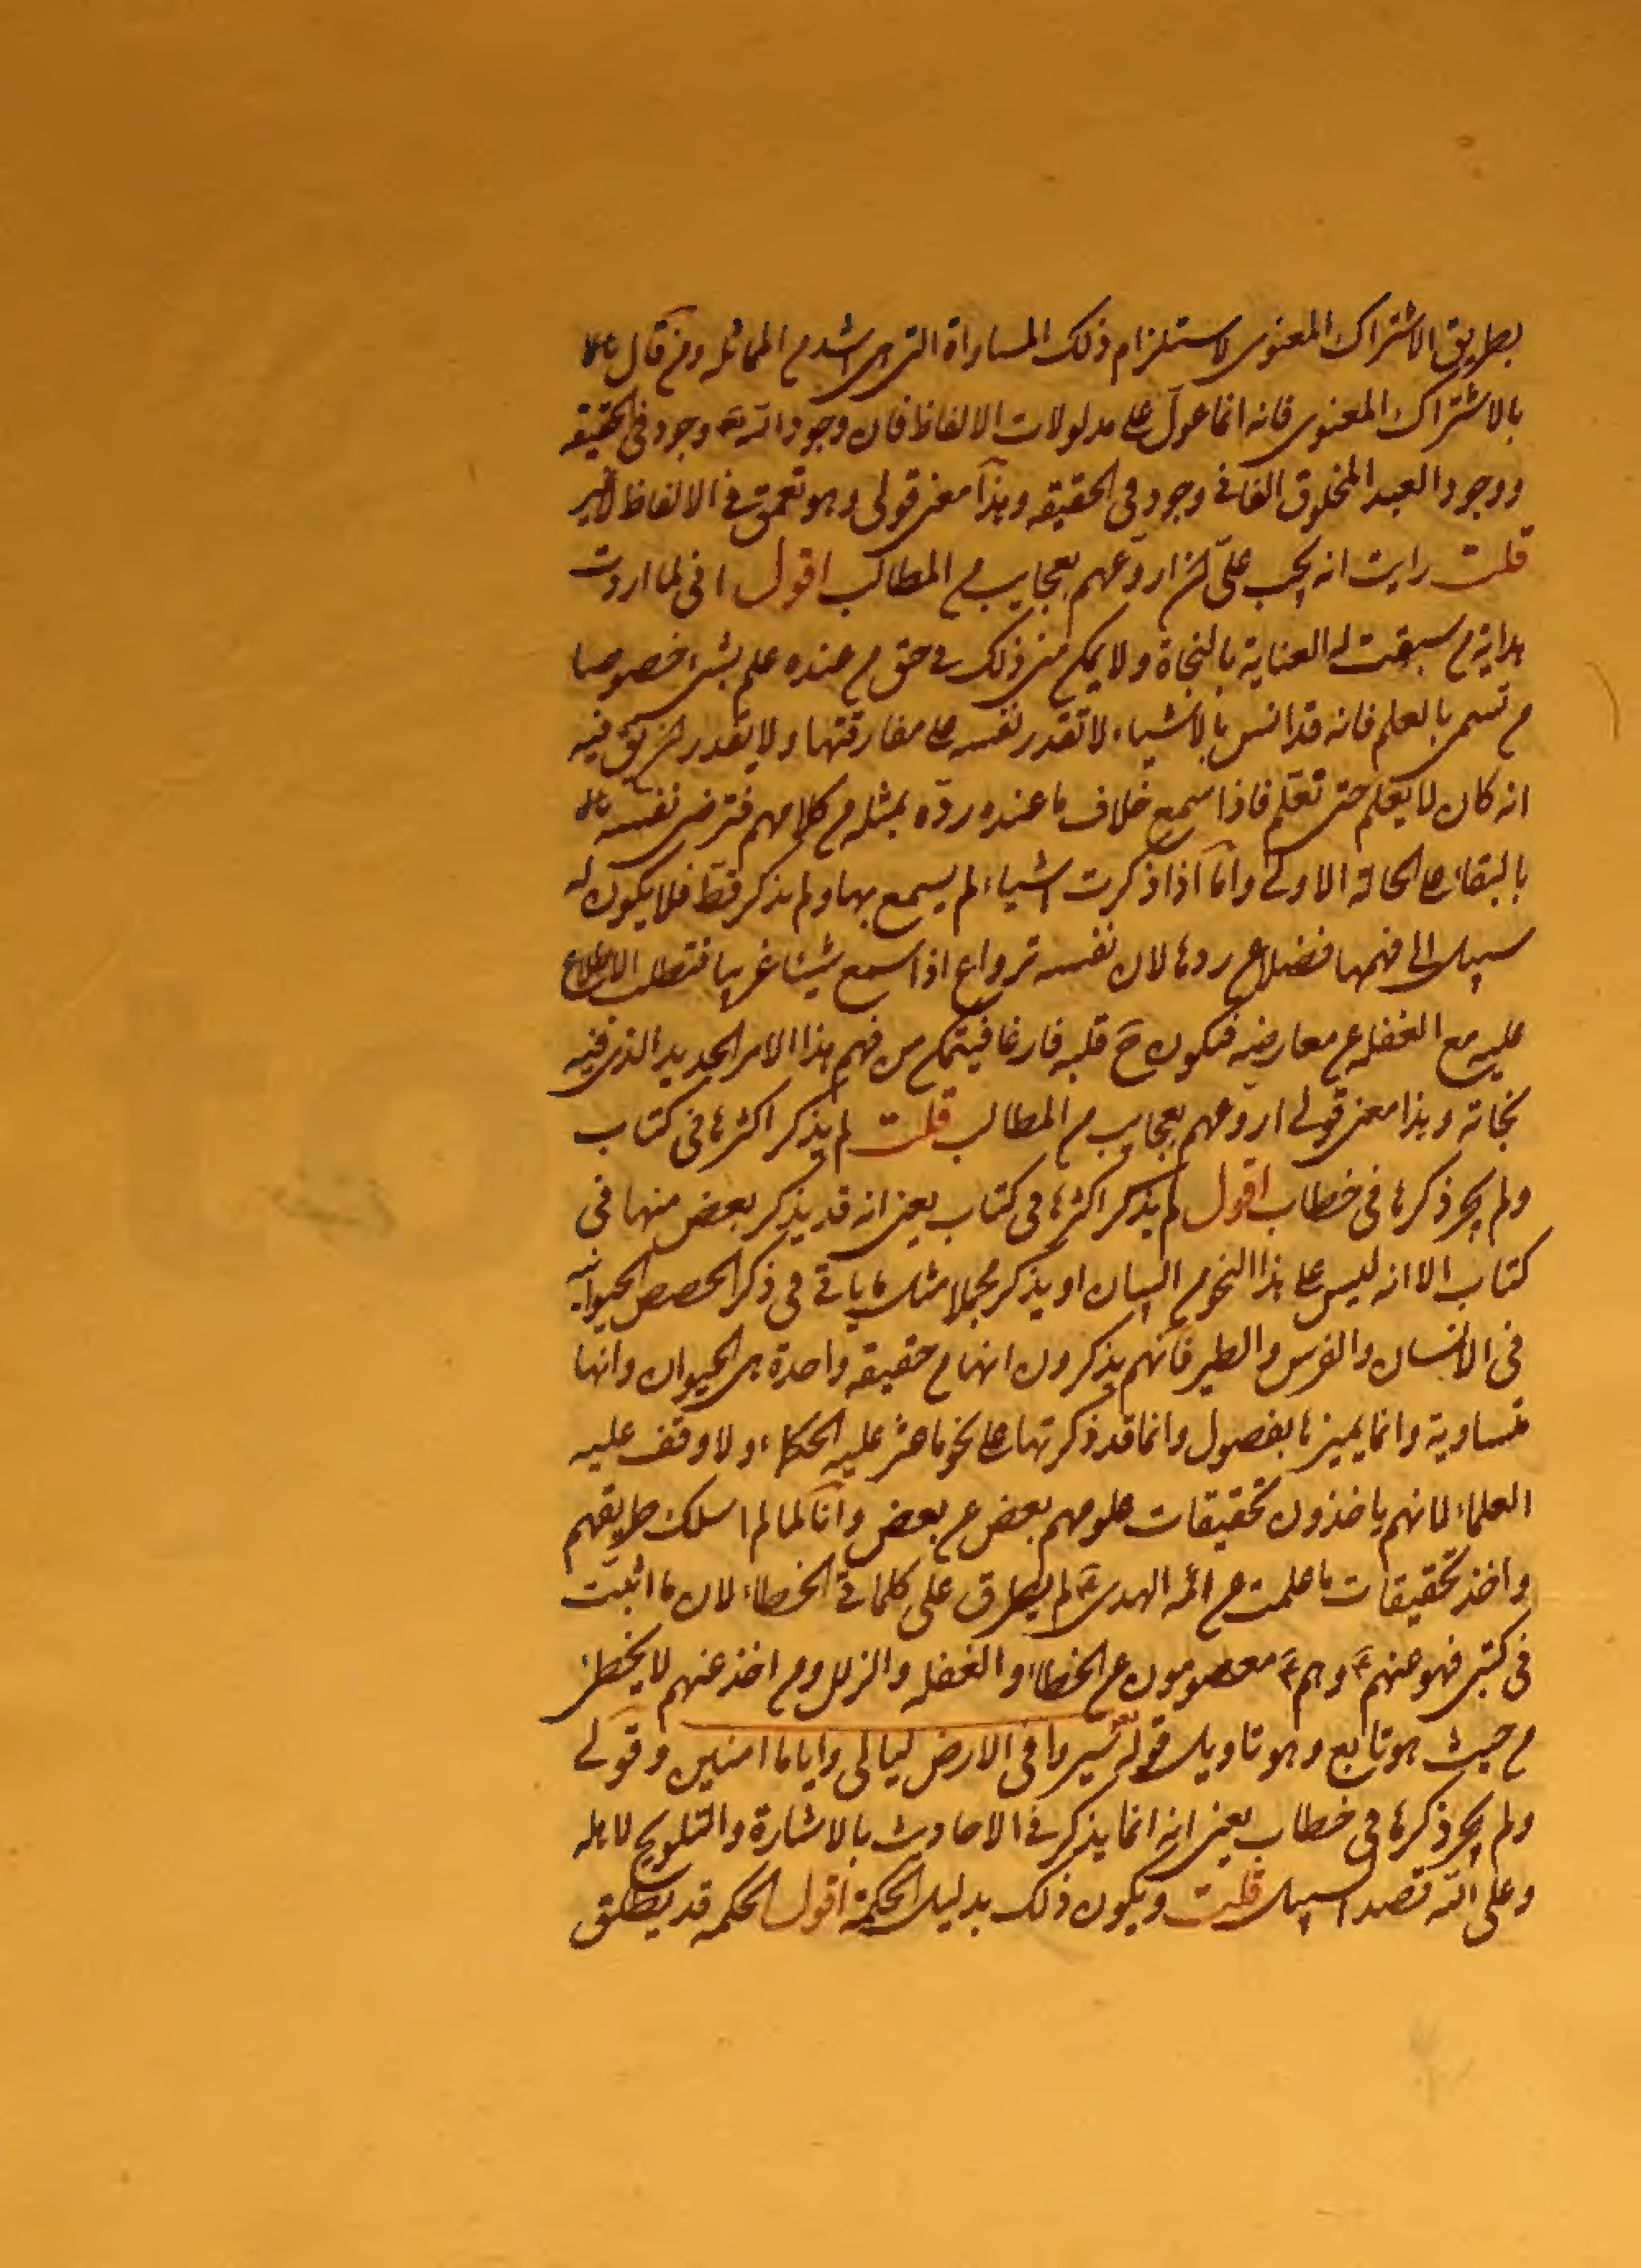 بطريق الاشتراك المعنوى لاستلزام ذلك المساراة التى هى اشد م المماثله ومن قال
بالاشتراك المعنوى فانه انما عول على مدلولات الالفاظ فان وجود الله تع وجود فى الحقيقه
ووجود العبد المخلوق الفانى وجود فى الحقيقه وهذا معنى قولى وهو تعمق فى الالفاظ لاغير
قلت رايت انه يجب علىّ ان اروّعهم بعجايب م المطالب اقول انى لما اردت
هداية م سبقت له العناية بالنجاة ولا يمكن ذلك فى حق م عنده علم بشىء خصوصا
م تسمى بالعلم فانه قد انس بالاشياء لا تقدر نفسه على مفارقتها ولا يقدر فيه
انه كان لا يعلم حتى تعلم فاذا سمع خلاف ما عنده ردّه بمثله م كلامهم فترضى نفسه
بالبقاء على الحالة الاولى وامّا اذا ذكرت اشياء لم يسمع بها ولم يذكر قط فلا يكون له
سبيل الى فهمها فضلا ع ردها لان نفسه ترواع اذا سمع شيئا غريبا فتطلب الاطلاع
عليه مع الغفله ع معارضه فيكون ح قلبه فارغا فيتمكن من فهم هذا الامر الجديد الذى فيه
نجاته وهذا معنى قولى اروعهم بعجايب م المطالب قلت لم يذكر اكثرها فى كتاب
ولم يجر ذكرها فى خطاب اقول لم يذكر اكثرها فى كتاب يعنى انه قد يذكر بعض منها فى
كتاب الا انه ليس على هذا النحو م البيان او يذكر مجملا مثل ما ياتى فى ذكر الحصص الحيوانيه
فى الانسان والفرس والطير فانهم يذكرون انها م حقيقه واحدة هى الحيوان وانها
متساوية وانما يميزها بفصول وانما قد ذكرتها على نحو ما عثر عليه الحكماء ولا وقف عليه
العلماء لانهم ياخذون تحقيقات علومهم بعض ع بعض وانا لما لم اسلك طريقهم
واخذ تحقيقات ما علمت ع ائمه الهدى ع لم يطرق على كلماتى الخطاء لان ما اثبت
فى كتبى فهو عنهم ع وهم ع معصومون ع الخطاء والغفله والزلل وم اخذ عنهم لا يخطئ
م حيث هو تابع وهو تاويل قوله تع سيروا فى الارض ليالى واياما امنين وقولى
ولم يجر ذكرها فى خطاب يعنى انه انما يذكر فى الاحاديث بالاشارة والتلويح لاهله
وعلى الله قصد السبيل قلت ويكون ذلك بدليل الحكمة اقول الحكمه قد يطلق